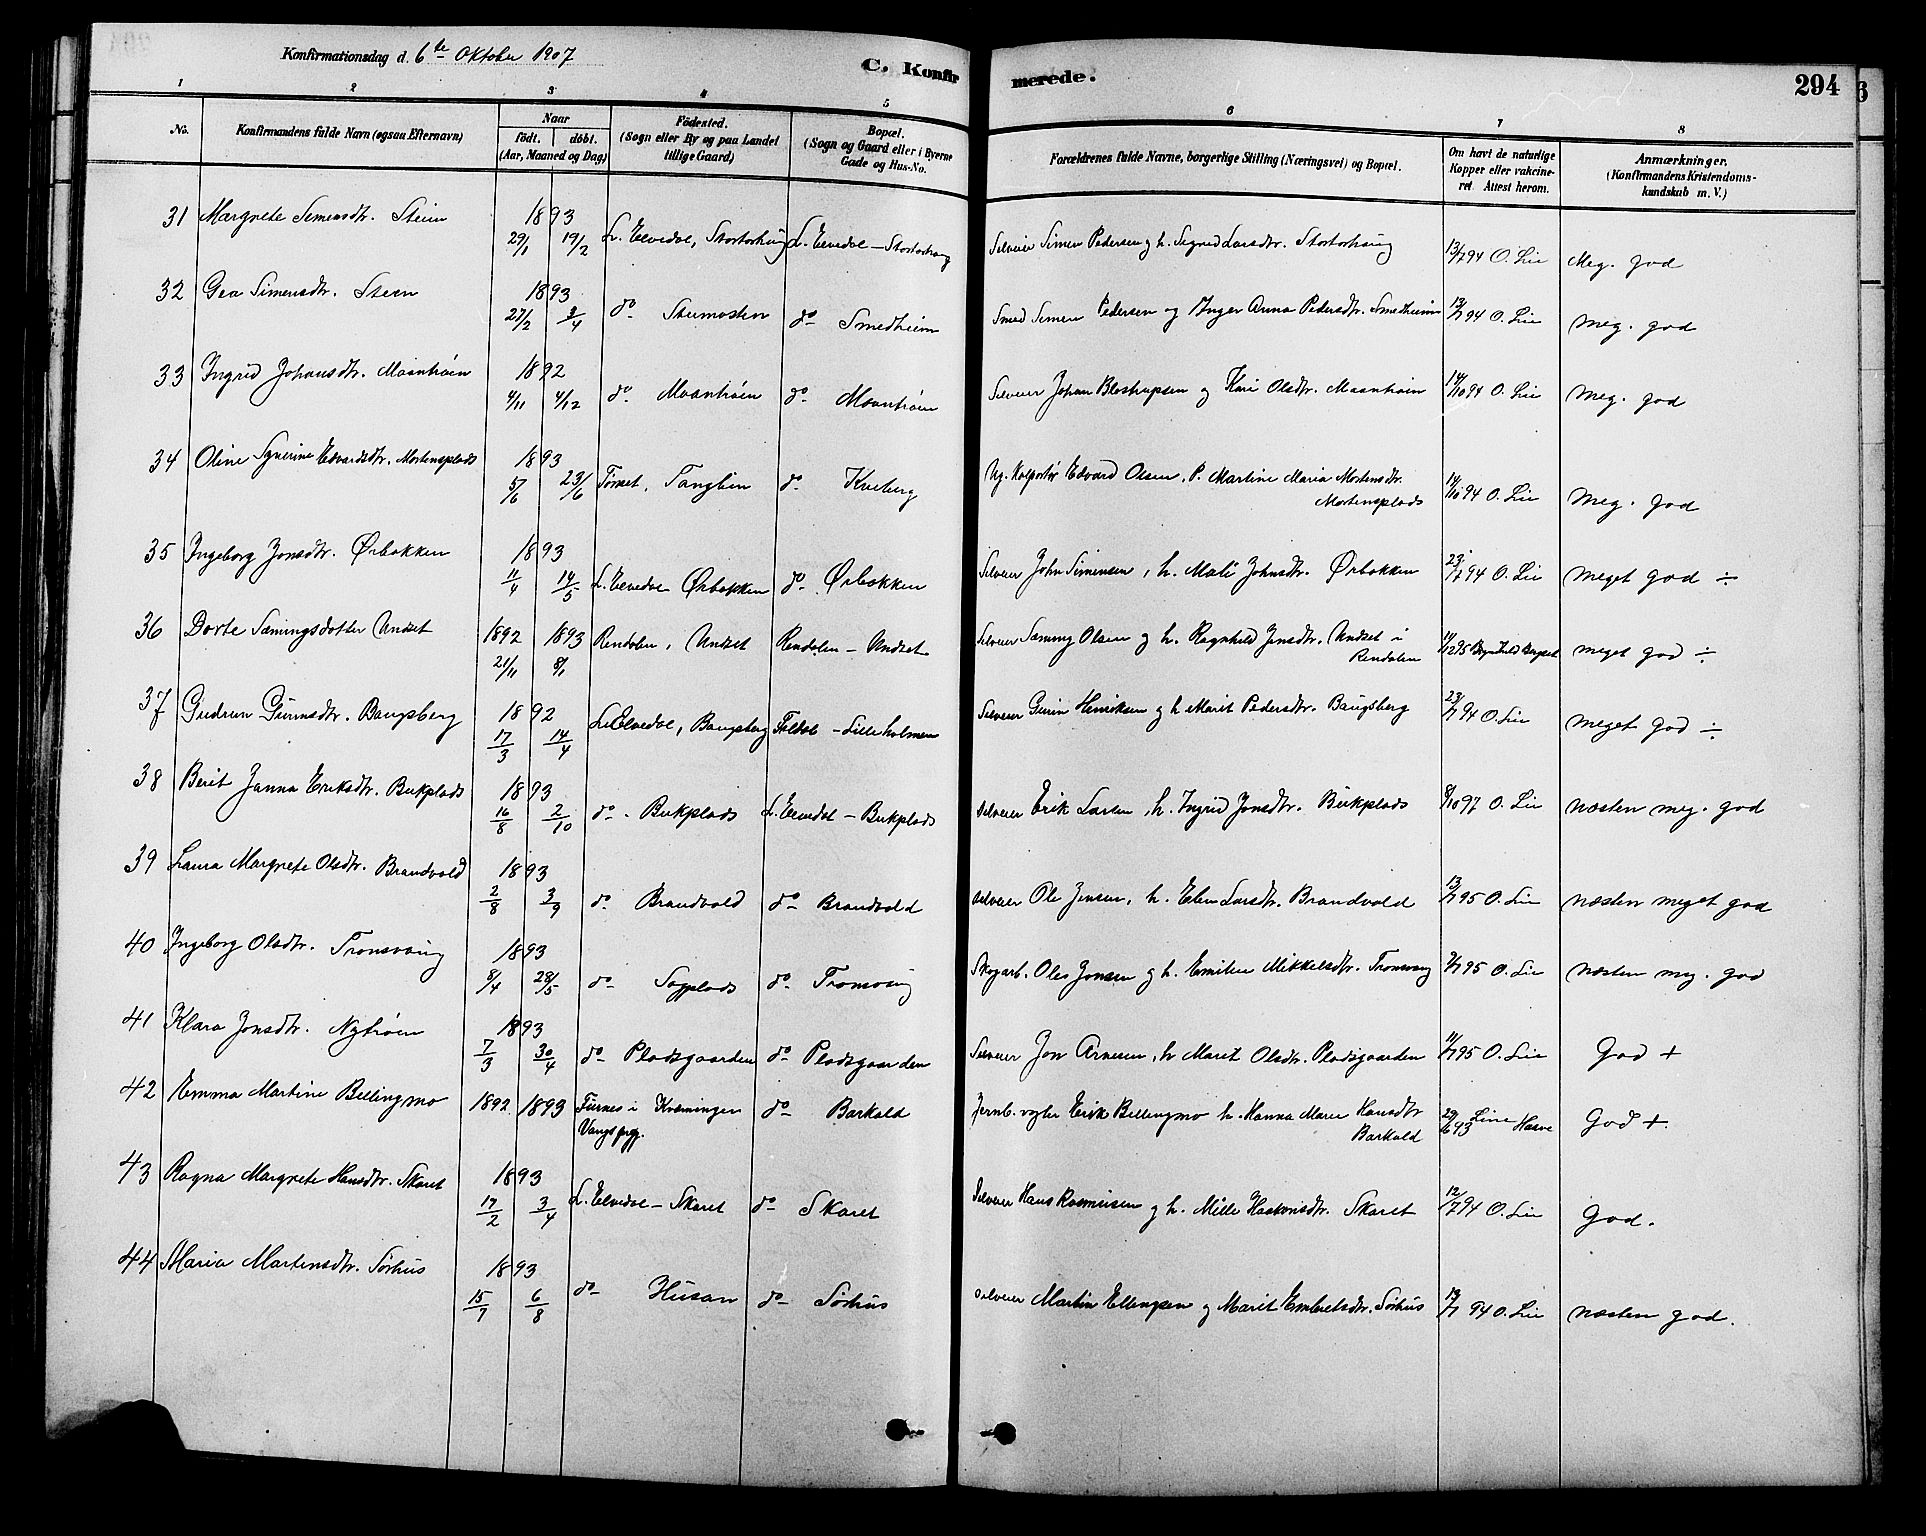 Konfirmationsdag d. 6te Oktober 1907
C. Konfirmerede.
294
1 2 3 4 5 6 7 8
No.
Konfirmandens fulde Navn (ogsaa Efternavn)
Naar
födt. döbt.
(Aar, Maaned og Dag)
Födested.
(Sogn eller By og paa Landet
tillige Gaard)
Bopæl.
(Sogn og Gaard eller i Byerne
Gade og Hus-No.
Forældrenes fulde Navne, borgerlige Stilling (Næringsvei) og Bopæl.
Om havt de naturlige
Kopper eller vakcine-
ret. Attest herom.
Anmærkninger.
(Konfirmandens Kristendoms-
kundskab m. V.)
31 Margrete Simensdtr. Steien 1893 29/1 19/2 L. Elvedal, Stortorhaug L. Elvedal – Stortorhaug Selveier Simen Pedersen g h. Sigrid Larsdtr. Stortorhaug 13/7 94 O. Lie Meg. god
32 Gea Simensdtr. Steen 1893 27/2 3/4 do Steimosten do Smedheim Smed Simen Pedersen og Inger Anna Pedersdtr. Smedheim 13/7 94 O. Lie Meg. god
33 Ingrid Johansdtr. Moantrøen 1892 4/11 4/12 do Moantrøen do Moantrøen Selveier Johan Blostrupsen og Kari Olsdtr. Moantrøen 14/10 94 O. Lie Meg. god
34 Oline Edvardsdtr. Mortensplads 1893 5/6 23/6 Tønset, Tanglien do Kveberg Ug. Kolportør Edvard Olsen, P. Martine Maria Mortensdtr.
Mortensplads 14/10 94 O. Lie Meg. god
35 Ingeborg Jonsdtr. Ørbakken 1893 11/4 14/5 L. Elvedal Ørbakken do Ørbakken Selveier John Simensen, h. Mali Johnsdtr. Ørbakken 23/7 94 O. Lie meget god ÷
36 Dorte Sæmingsdotter Undset 1892 21/11 1893 8/1 Rendalen, Undset Rendalen – Undset Selveier Sæming Olsen og h. Ragnhild Jensdtr. Undset i
Rendalen 11/12 95 Bergset meget god ÷
37 Gudrun Gunnsdtr. Baugsberg 1892 17/3 14/4 L. Elvedal, Baugsberg Foldal – Lilleholmen Selveier Henriksen g h Marit Pedersdtr. Baugsberg 23/7 94 O. Lie meget god ÷
38 Berit Janna Eriksdtr. Birkplads 1893 16/8 2/10 do. Birkplads L. Elvedal – Birkplads selveier Erik Larsen, h. Ingrid Jonsdtr. Birkplads 8/10 97 O. Lie næsten meg. god
39 Laura Margrete Olsdtr. Brandvold 1893 2/8 3/9 do Brandvold do Brandvold selveier Ole Jensen, h. Elen Larsdtr. Brandvold 13/7 95 O. Lie næsten meget god
40 Ingeborg Olsdtr. Tronsvang 1893 8/4 28/5 do Sagplads do Tronsvang Skogarb. Ole Jonsen g h. Emilie Mikkelsdtr. Tronsvang 7/7 95 O. Lie næsten meg. god
41 Klara Jonsdtr. Nytrøen 1893 7/3 30/4 do Pladsgaarden do Pladsgaarden Selveier Jon Arnesen, h Marit Olsdtr. Pladsgaarden 11/7 95 O. Lie God +
42 Emma Martine Bellingmo 1892 1893 Furnes i Kvæmingen
Vangs prgj. do Barkald Jernb. vogter Erik Bellingmo h. Hanna Marie Hansdtr
Barkald 29/6 93 God +
43 Ragna Margrete Hansdtr. Skaret 1893 17/2 3/4 L. Elvedal – Skaret do Skaret Selveier Hans Rasmussen g h. Mille Haakonsdtr. Skaret 12/7 94 O. Lie God.
44 Maria Martinsdtr. Sørhus 1893 15/7 6/8 do Husan do Sørhus selveier Martin Ellingsen og Marit Embretsdtr. Sørhus 13/7 94 O. Lie næsten god.